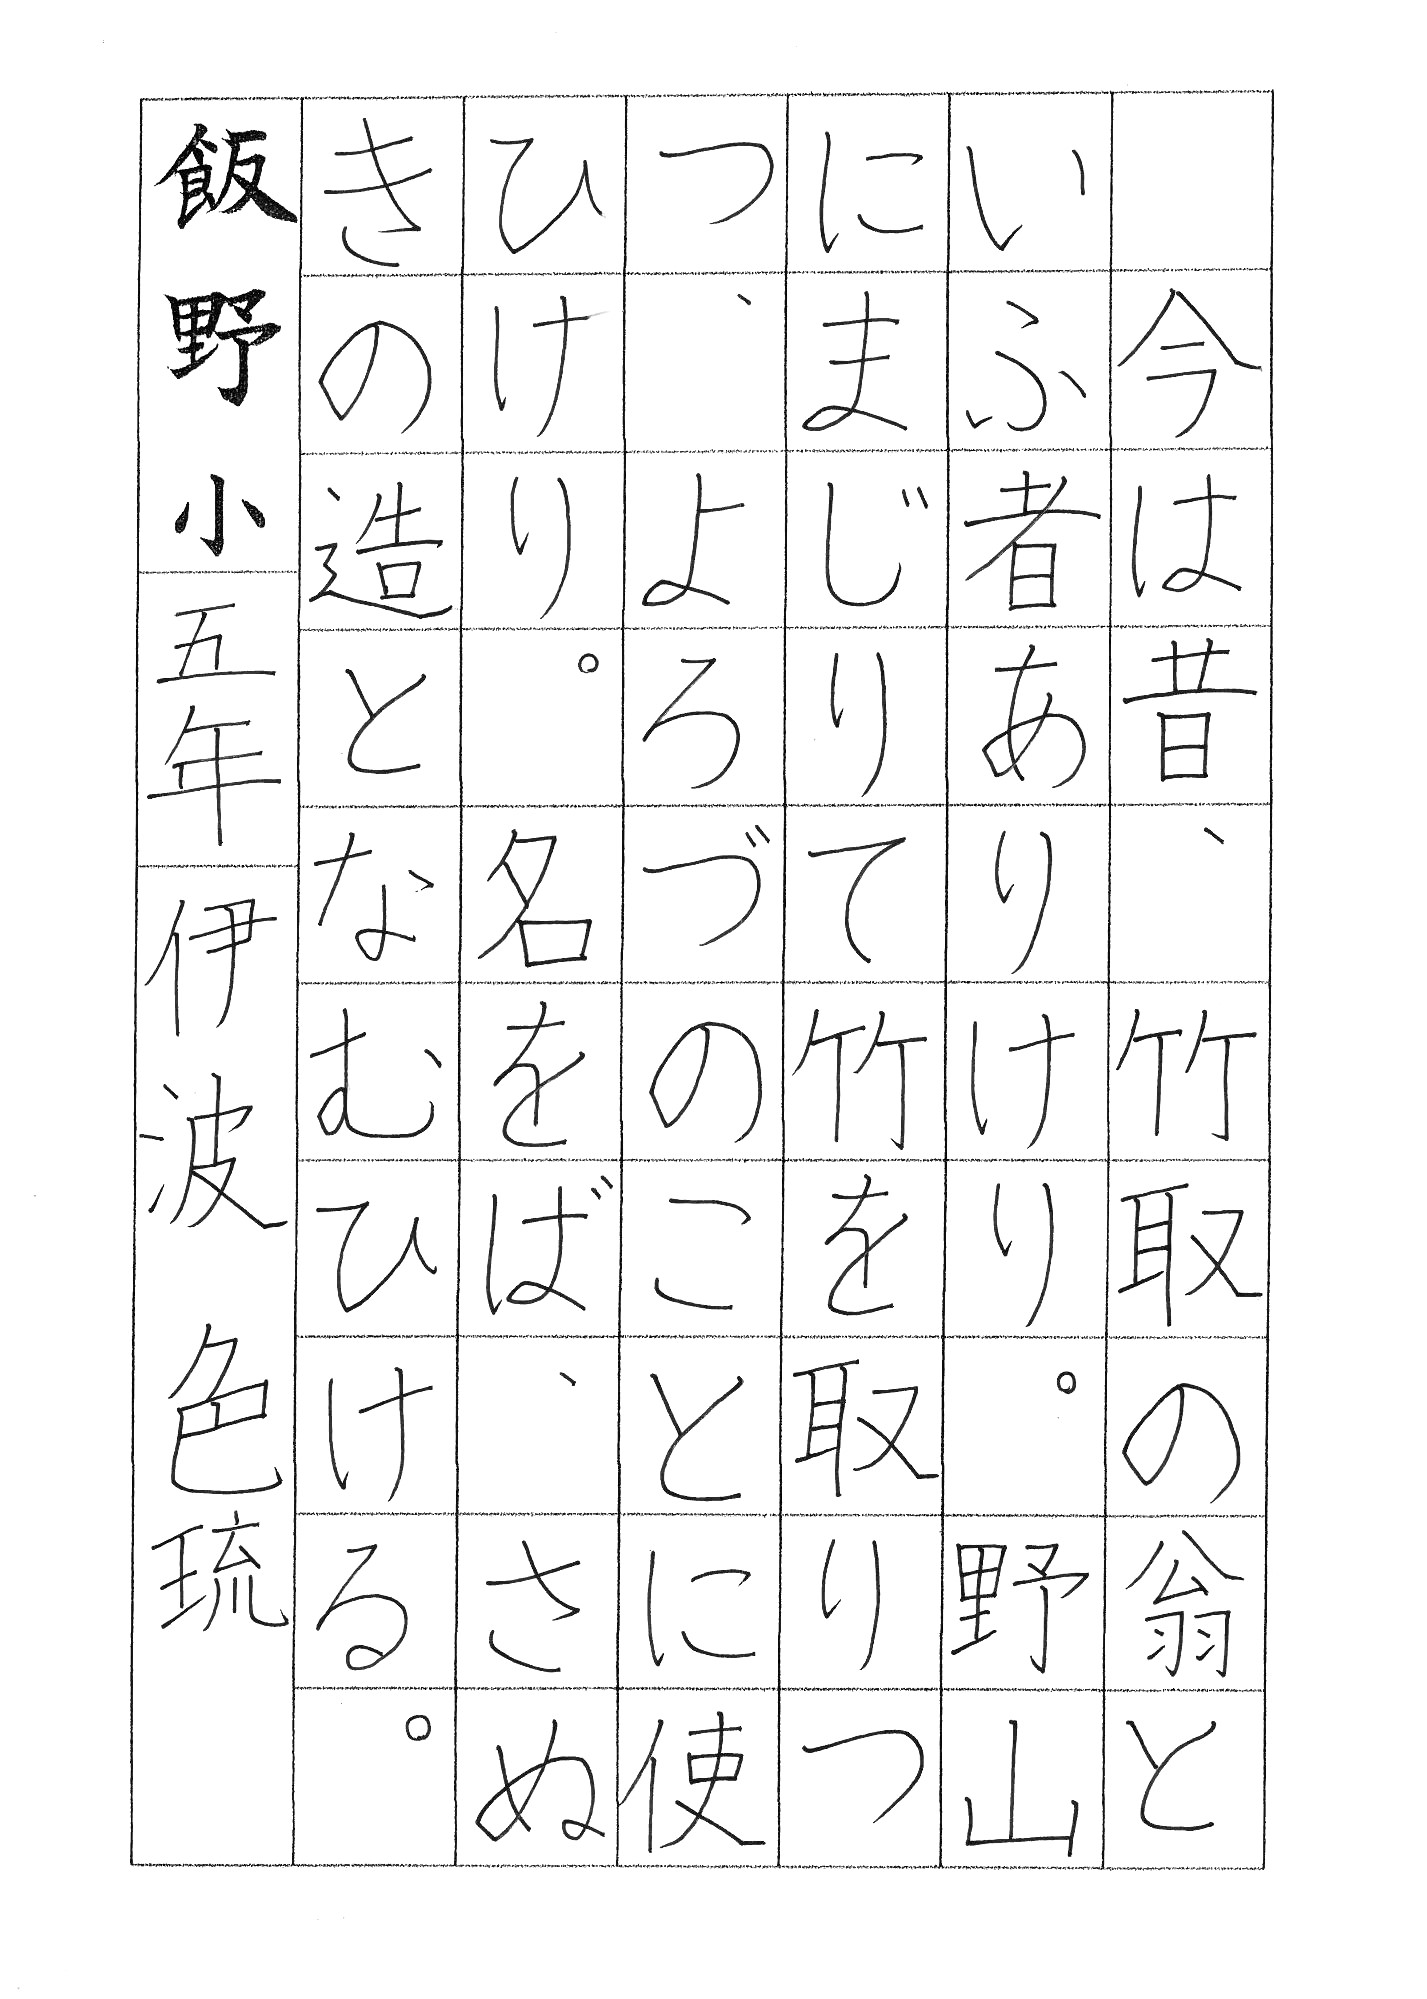 今は昔、竹取の翁と
いふ者ありけり。野山
にまじりて竹を取りつ
つ、よろづのことに使
ひけり。名をば、さぬ
きの造となむひける。
飯野小五年伊波　色琉